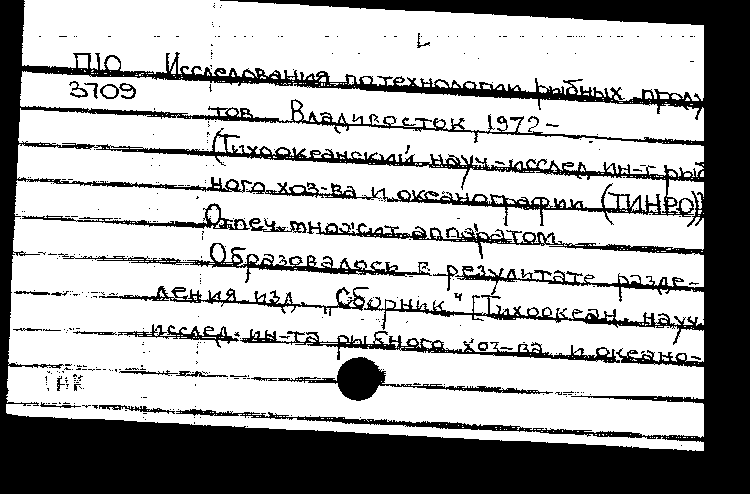 П10 Исследования по технологии рыбных проду
3709
тов Владивосток, 1972-
(Тихоокеанский науч.-исслед. ин-т рыб
ного хоз-ва и океанографии (ТИНРО))
Отпеч. множит. аппаратом.
Образовалось в результате разде-
ления изд. „Сборник" [Тихоокеан. науч.
исслед. ин-та рыбного хоз-ва и океано-